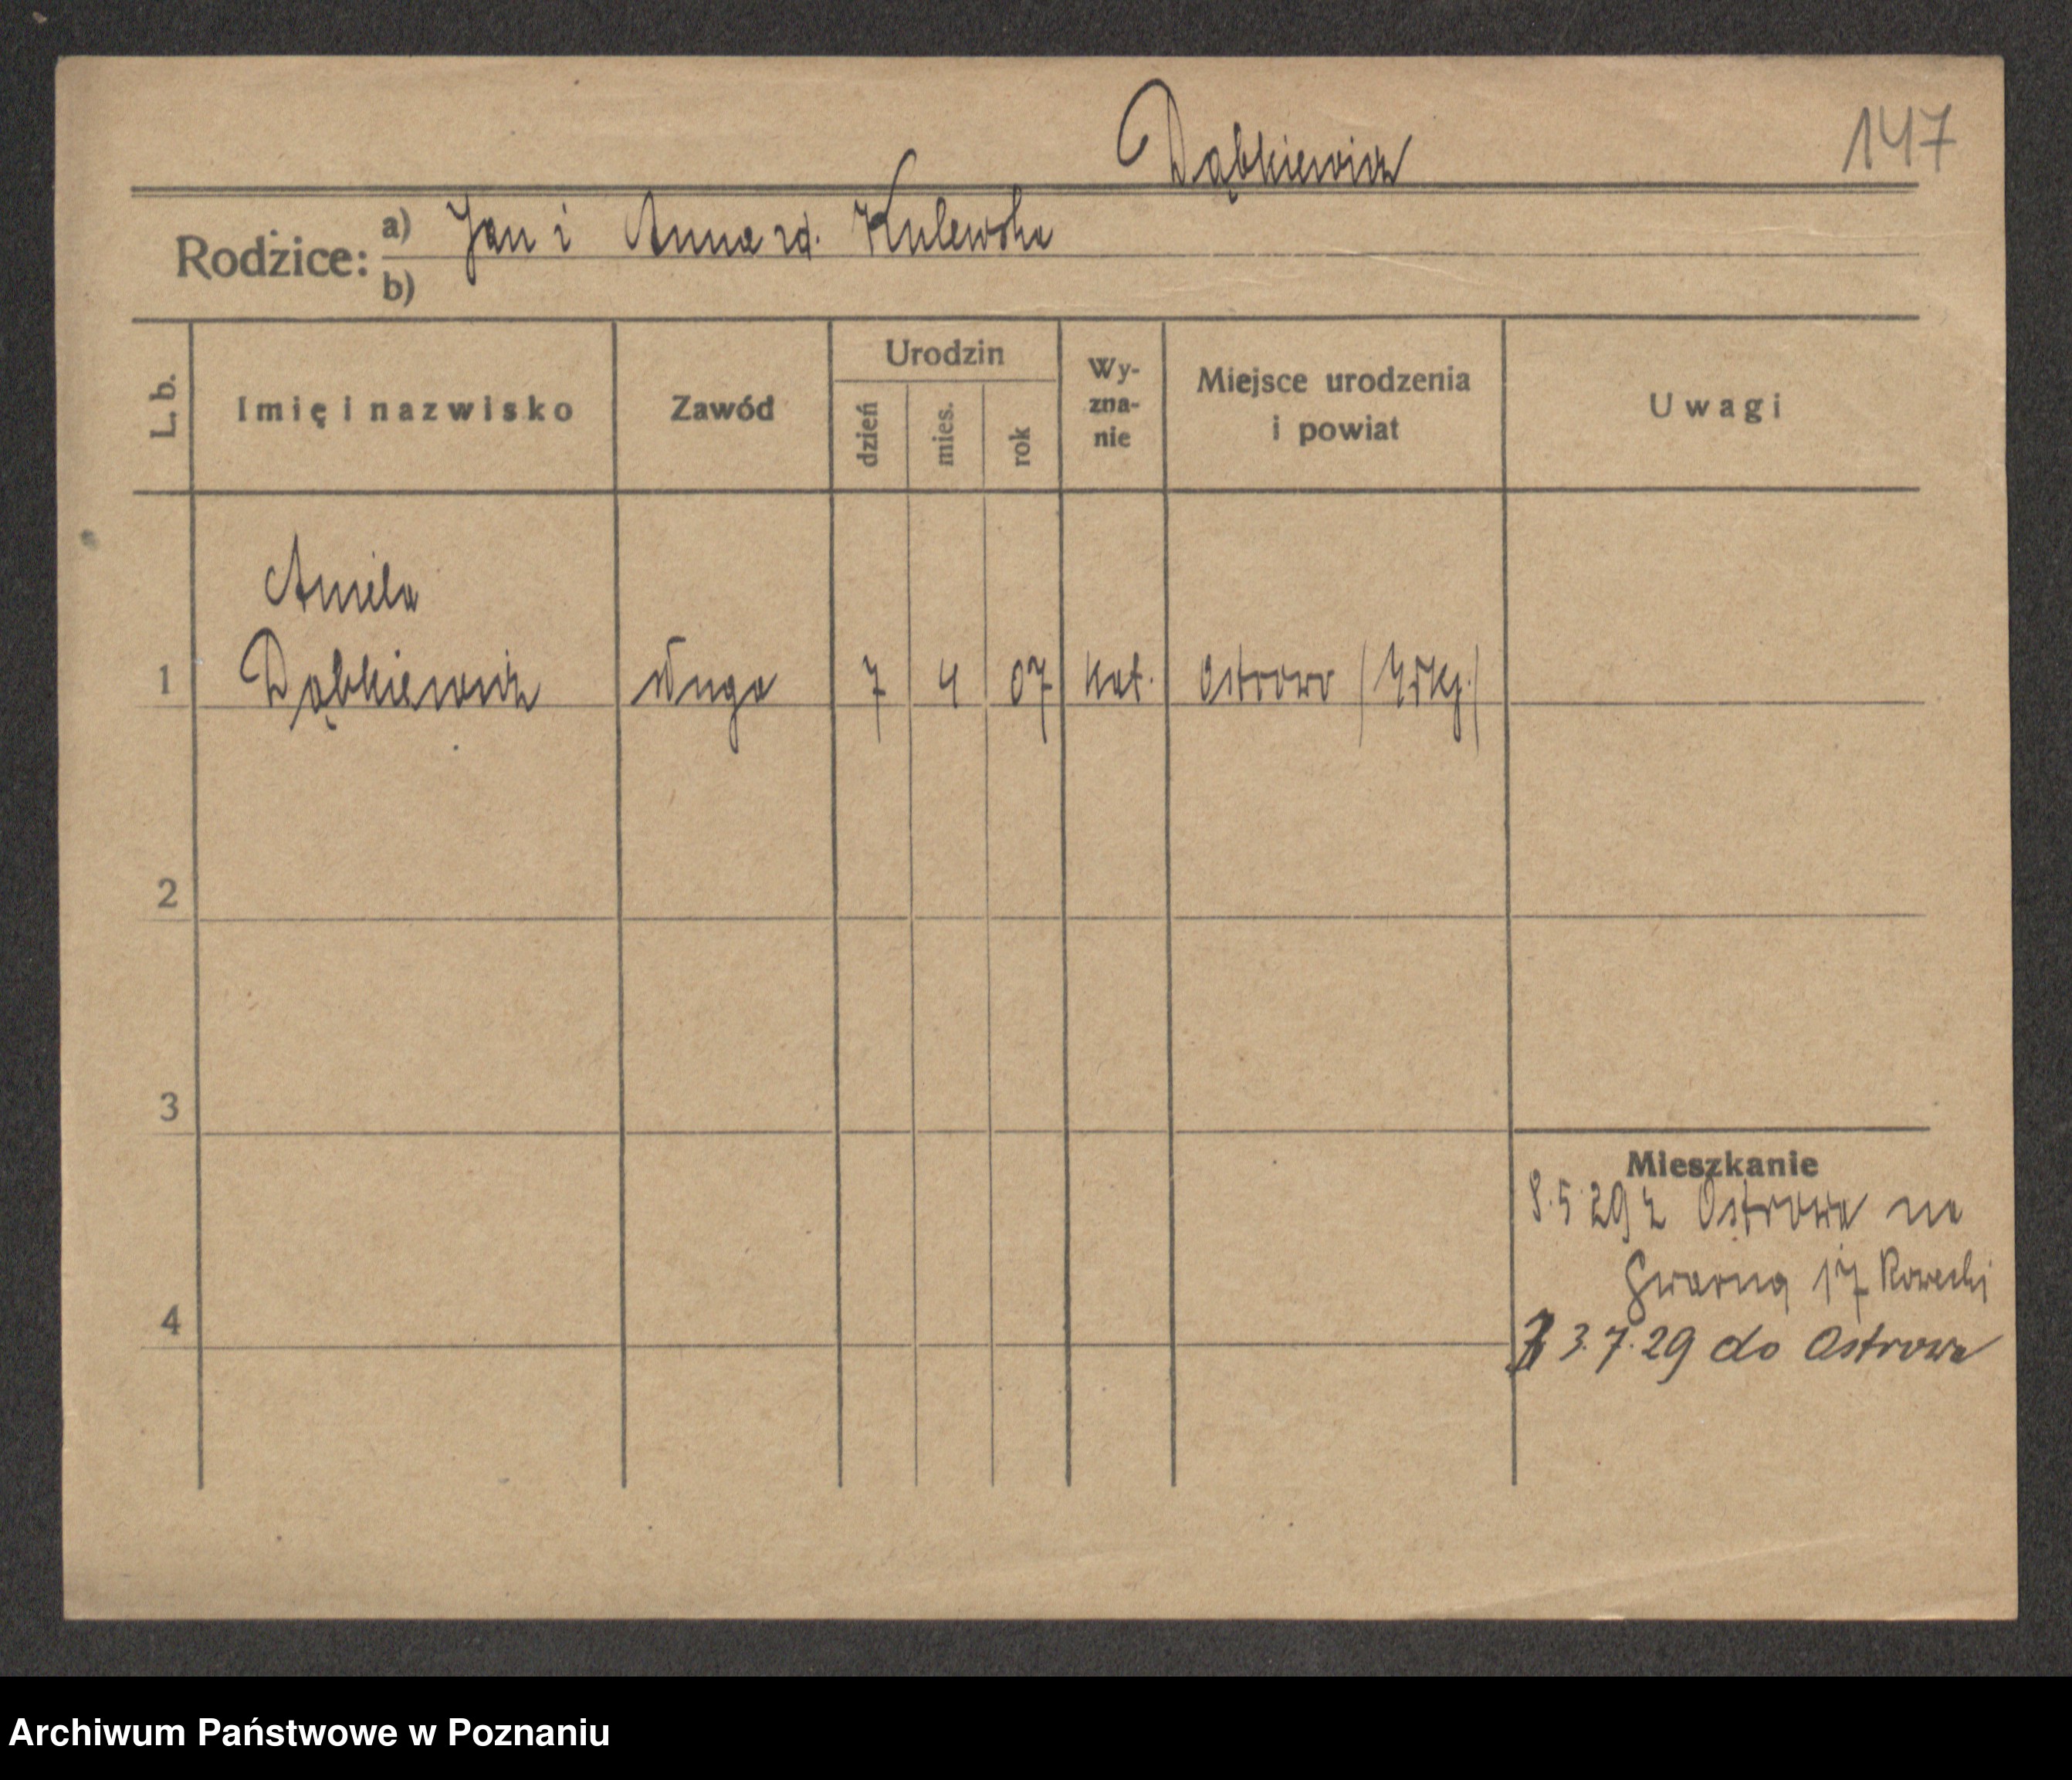 Dąbkiewicz
147
Rodzice:
a) Jan i Anna rd. Kulewska
b)
L. b.
Imię i nazwisko
Zawód
Urodzin
dzień
mies.
rok
Wy-
zna-
nie
Miejsce urodzenia
i powiat
Uwagi
Aniela
1 Dąbkiewicz sługa 7 4 07 kat. Ostrowo
2
3
4
Mieszkanie
8.5.29 z Ostrowa na
Gwarną 17
3.7.29 do Ostrowa
Archiwum Państwowe w Poznaniu